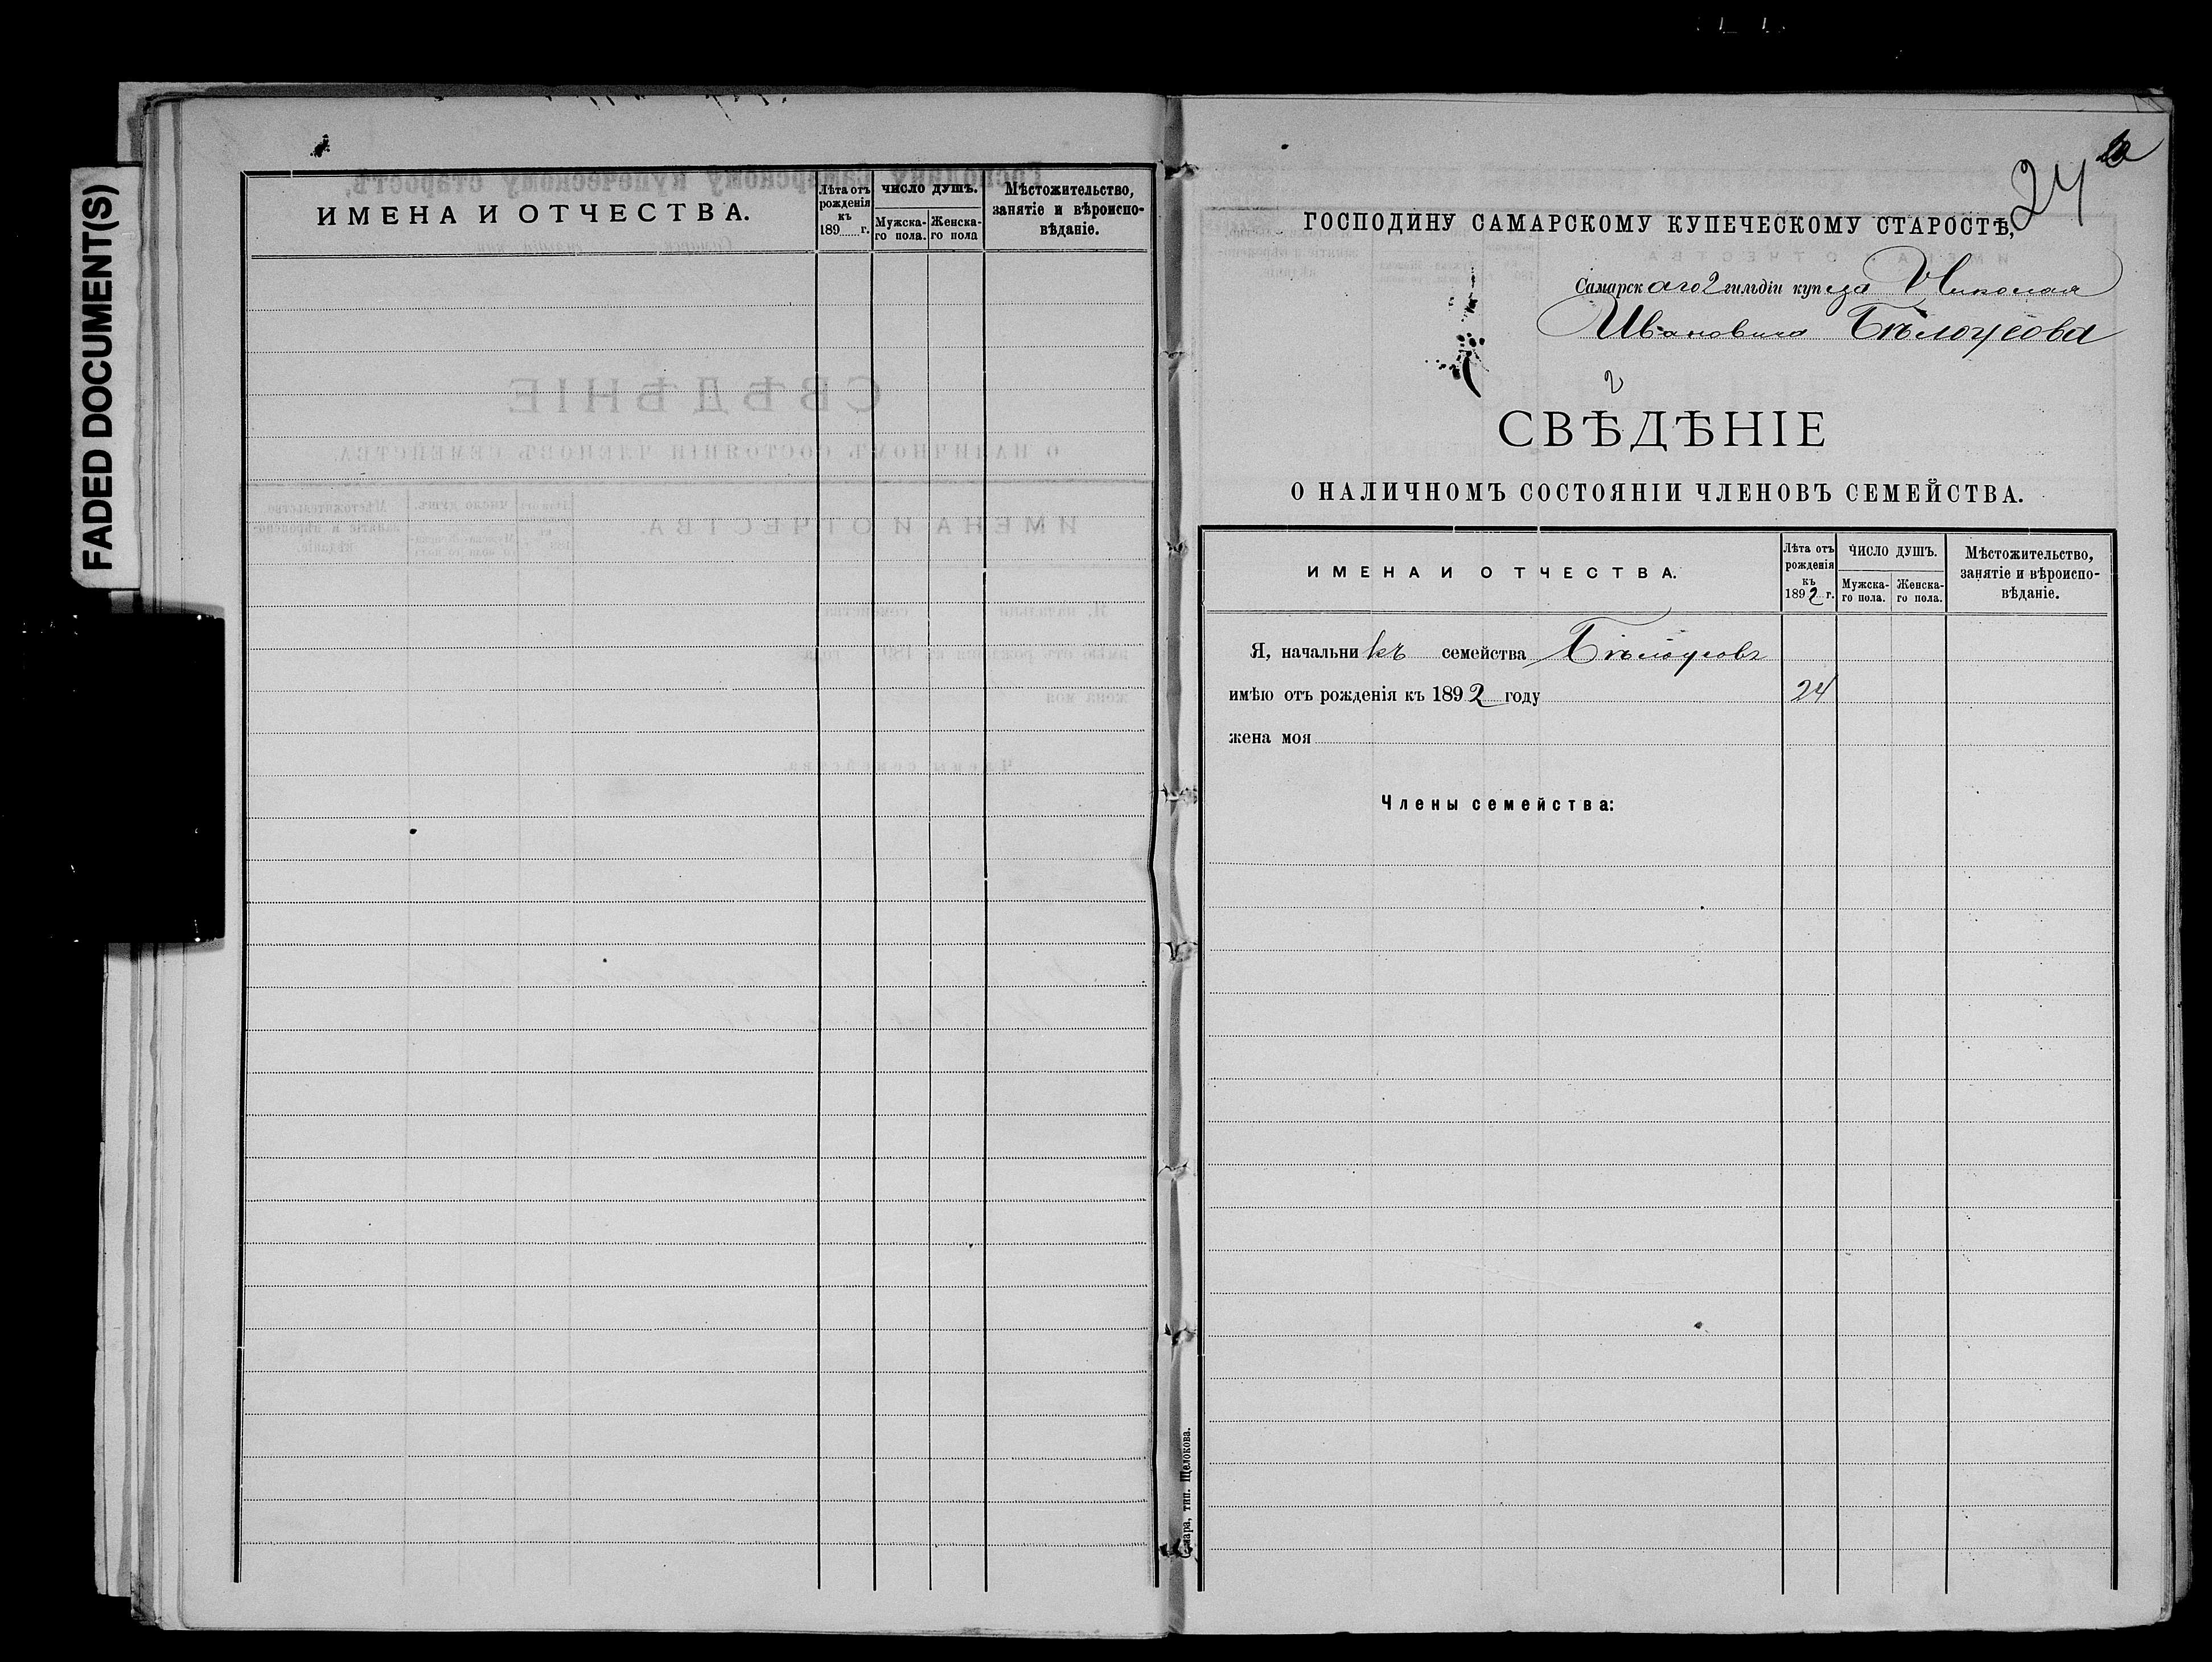 FADED DOCUMENT(S)
ИМЕНА И ОТЧЕСТВА.
Лѣта отъ рожденія къ 189 г.
ЧИСЛО ДУШЪ.
Мужска-го пола.
Женска-го пола
Мѣстожительство, занятіе и вѣроиспо-вѣданіе.
24
ГОСПОДИНУ САМАРСКОМУ КУПЕЧЕСКОМУ СТАРОСТѢ,
Самарскаго 2 гильдіи купца Николая
Ивановича Бѣлоусова
2
СВѢДѢНІЕ
О НАЛИЧНОМЪ СОСТОЯНІИ ЧЛЕНОВЪ СЕМЕЙСТВА.
ИМЕНА И ОТЧЕСТВА.
Лѣта отъ рожденія къ 1892 г.
ЧИСЛО ДУШЪ.
Мужска-го пола.
Женска-го пола.
Мѣстожительство, занятіе и вѣроиспо-вѣданіе.
Я, начальникъ семейства Бѣлоусовъ
имѣю отъ рожденія къ 1892 году 24
жена моя
Члены семейства:
Самара, тип. Щелокова.